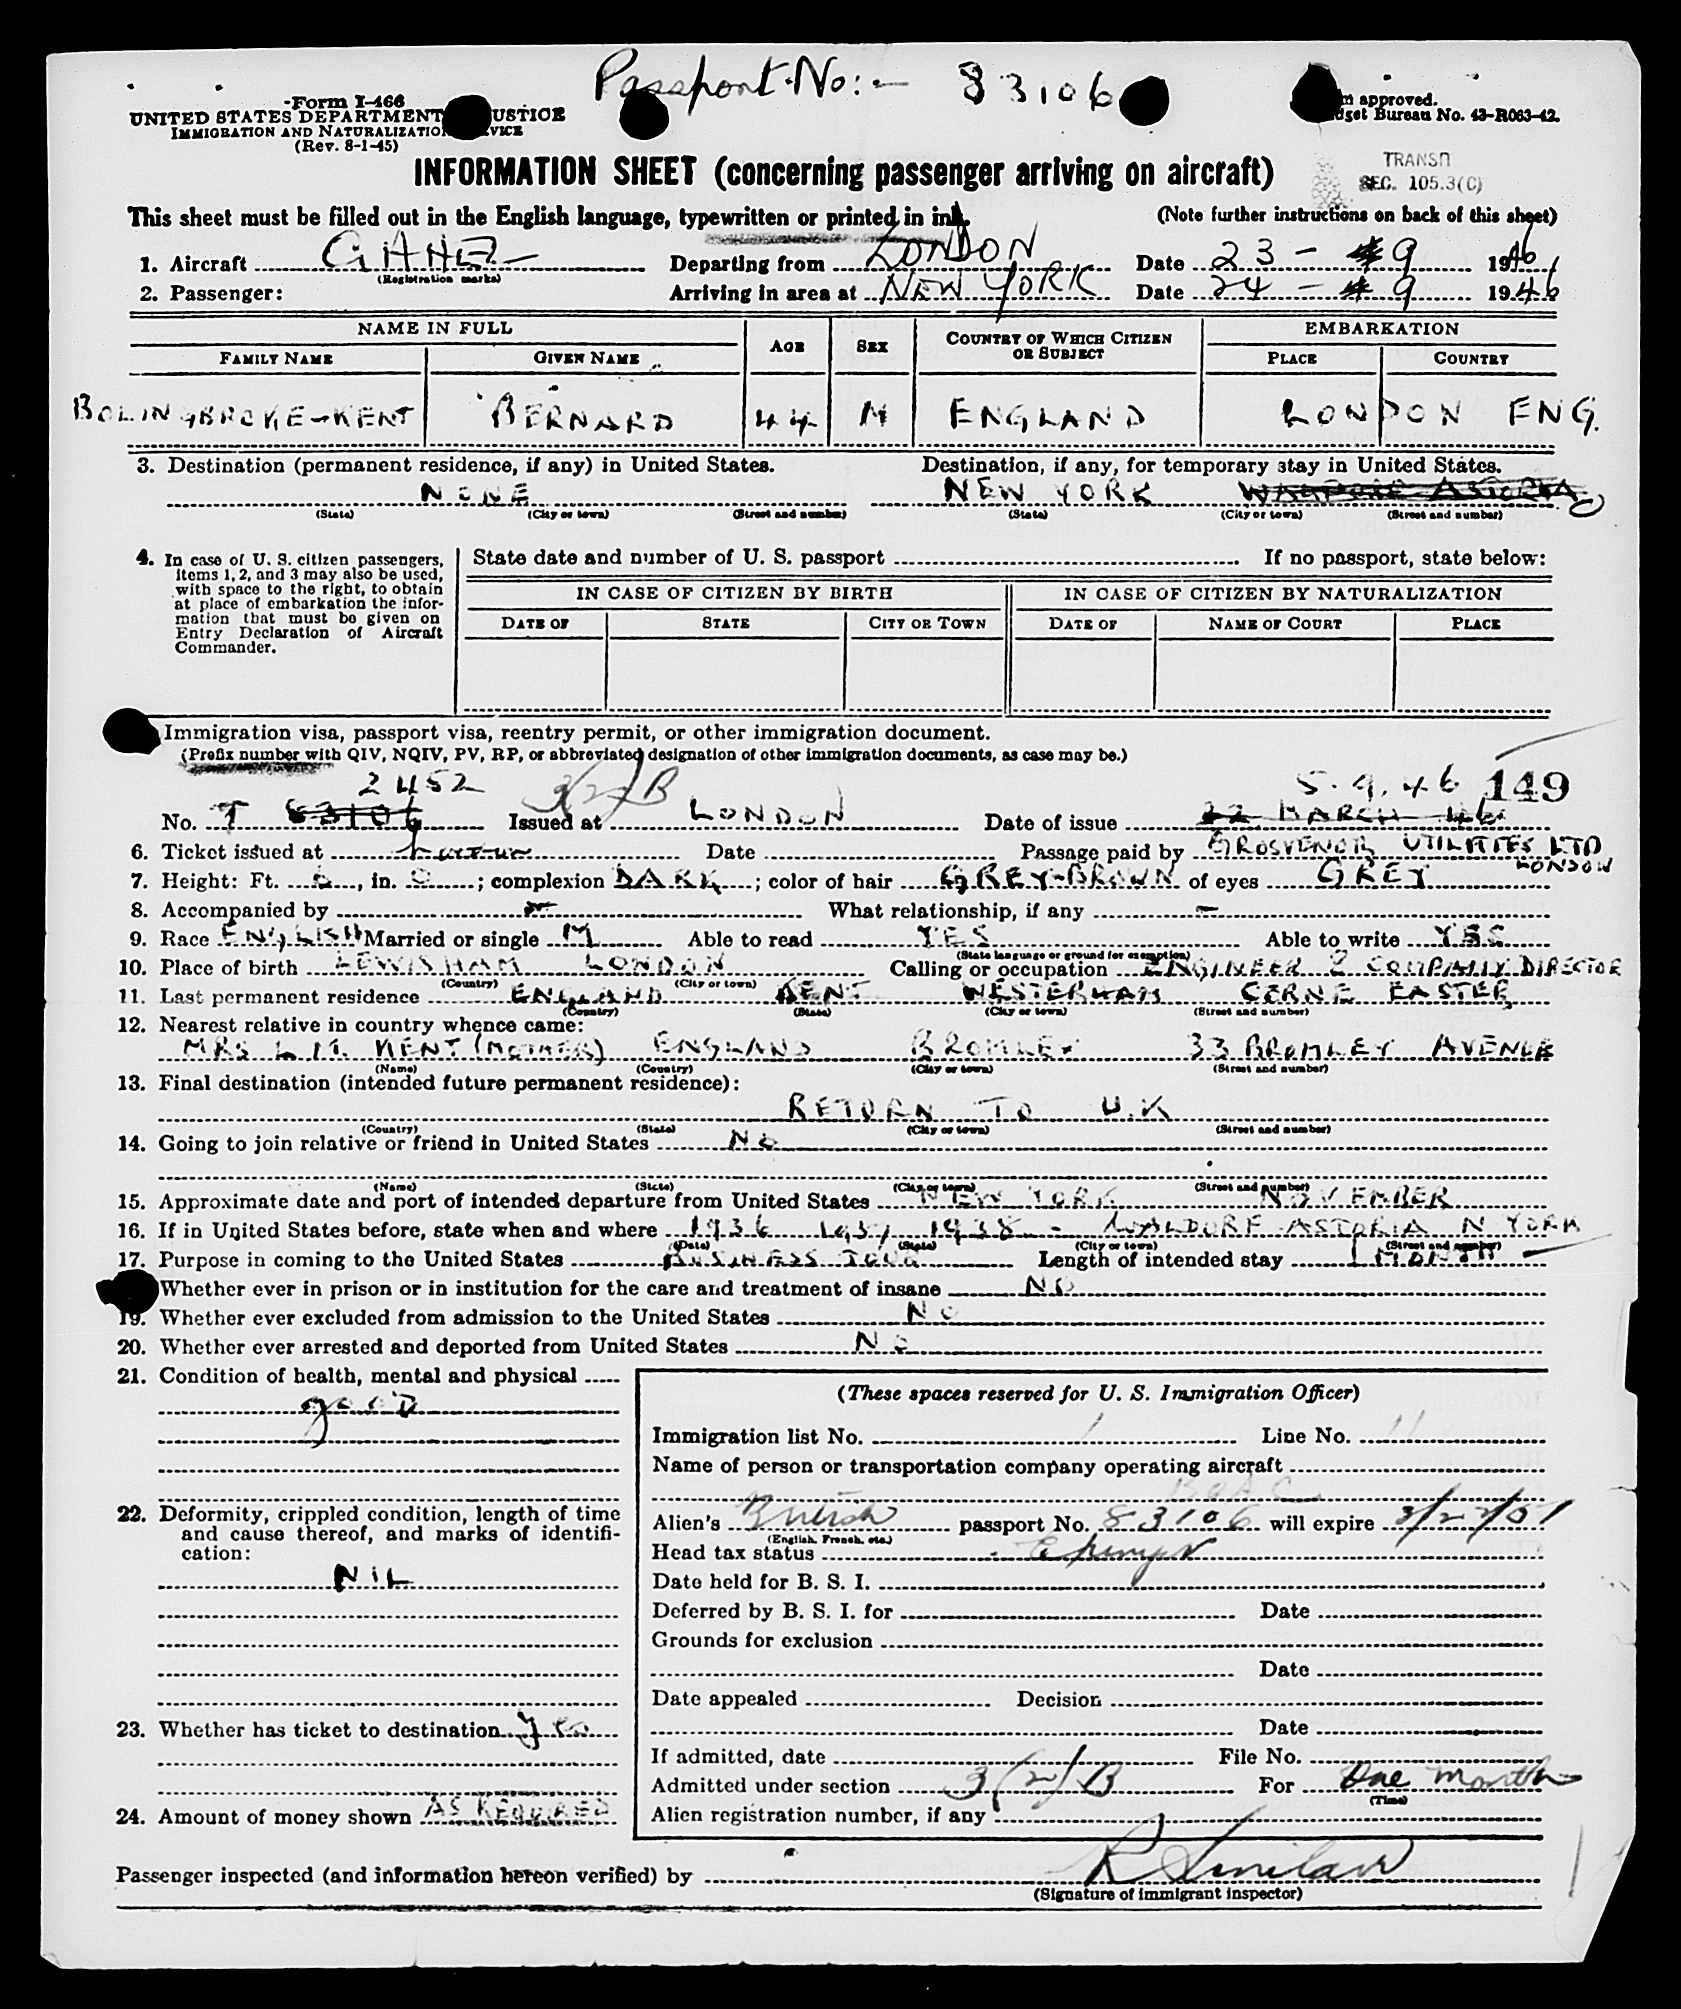 Passport No:- 83106
Form I-466
UNITED STATES DEPARTMENT JUSTICE
IMMIGRATION AND NATURALIZATION SERVICE
(Rev. 8-1-45)
approved.
Budget Bureau No. 43-R063-42.
INFORMATION SHEET (concerning passenger arriving on aircraft)
SEC. 105.3(C)
This sheet must be filled out in the English language, typewritten or printed in ink.
(Note further instructions on back of this sheet)
1. Aircraft (Registration marks) Departing from LONDON Date 23 - 9 1946
2. Passenger: Arriving in area at NEW YORK Date 24 - 9 1946
NAME IN FULL AGE SEX COUNTRY OF WHICH CITIZEN OR SUBJECT EMBARKATION
FAMILY NAME GIVEN NAME PLACE COUNTRY
BOLINGBROKE-KENT BERNARD 44 M ENGLAND LONDON ENG.
3. Destination (permanent residence, if any) in United States. Destination, if any, for temporary stay in United States.
NONE NEW YORK
(State) (City or town) (Street and number) (State) (City or town) (Street and number)
4. In case of U. S. citizen passengers, items 1, 2, and 3 may also be used, with space to the right, to obtain at place of embarkation the information that must be given on Entry Declaration of Aircraft Commander.
State date and number of U. S. passport If no passport, state below:
IN CASE OF CITIZEN BY BIRTH IN CASE OF CITIZEN BY NATURALIZATION
DATE OF STATE CITY OR TOWN DATE OF NAME OF COURT PLACE
Immigration visa, passport visa, reentry permit, or other immigration document.
(Prefix number with QIV, NQIV, PV, RP, or abbreviated designation of other immigration documents, as case may be.)
2452 3(2)B 5.9.46 149
No. T 83106 Issued at LONDON Date of issue 22 MARCH 46
6. Ticket issued at Date Passage paid by GROSVENOR UTILITIES LTD LONDON
7. Height: Ft. , in. ; complexion DARK ; color of hair GREY-BROWN of eyes GREY
8. Accompanied by - What relationship, if any -
9. Race ENGLISH Married or single M Able to read YES Able to write YES
(State language or ground for exemption)
10. Place of birth LEWISHAM LONDON Calling or occupation ENGINEER & COMPANY DIRECTOR
(Country) (City or town)
11. Last permanent residence ENGLAND KENT WESTERHAM
(Country) (State) (City or town) (Street and number)
12. Nearest relative in country whence came:
MRS L M. KENT (MOTHER) ENGLAND BROMLEY 33 BROMLEY AVENUE
(Name) (Country) (City or town) (Street and number)
13. Final destination (intended future permanent residence):
RETURN TO U.K
(Country) (State) (City or town) (Street and number)
14. Going to join relative or friend in United States NO
(Name) (State) (City or town) (Street and number)
15. Approximate date and port of intended departure from United States NEW YORK NOVEMBER
16. If in United States before, state when and where 1936 1937 1938 - WALDORF ASTORIA N YORK
(Date) (State) (City or town) (Street and number)
17. Purpose in coming to the United States BUSINESS TOUR Length of intended stay 1 MONTH
Whether ever in prison or in institution for the care and treatment of insane NO
19. Whether ever excluded from admission to the United States NO
20. Whether ever arrested and deported from United States NO
21. Condition of health, mental and physical
good
22. Deformity, crippled condition, length of time and cause thereof, and marks of identification:
NIL
23. Whether has ticket to destination yes
24. Amount of money shown AS REQUIRED
(These spaces reserved for U. S. Immigration Officer)
Immigration list No. 1 Line No. 11
Name of person or transportation company operating aircraft
BOAC
Alien's British passport No. 83106 will expire 3/22/51
(English, French, etc.)
Head tax status
Date held for B. S. I.
Deferred by B. S. I. for Date
Grounds for exclusion
Date
Date appealed Decision
Date
If admitted, date File No.
Admitted under section 3(2)B For One month
(Time)
Alien registration number, if any
Passenger inspected (and information hereon verified) by
(Signature of immigrant inspector)